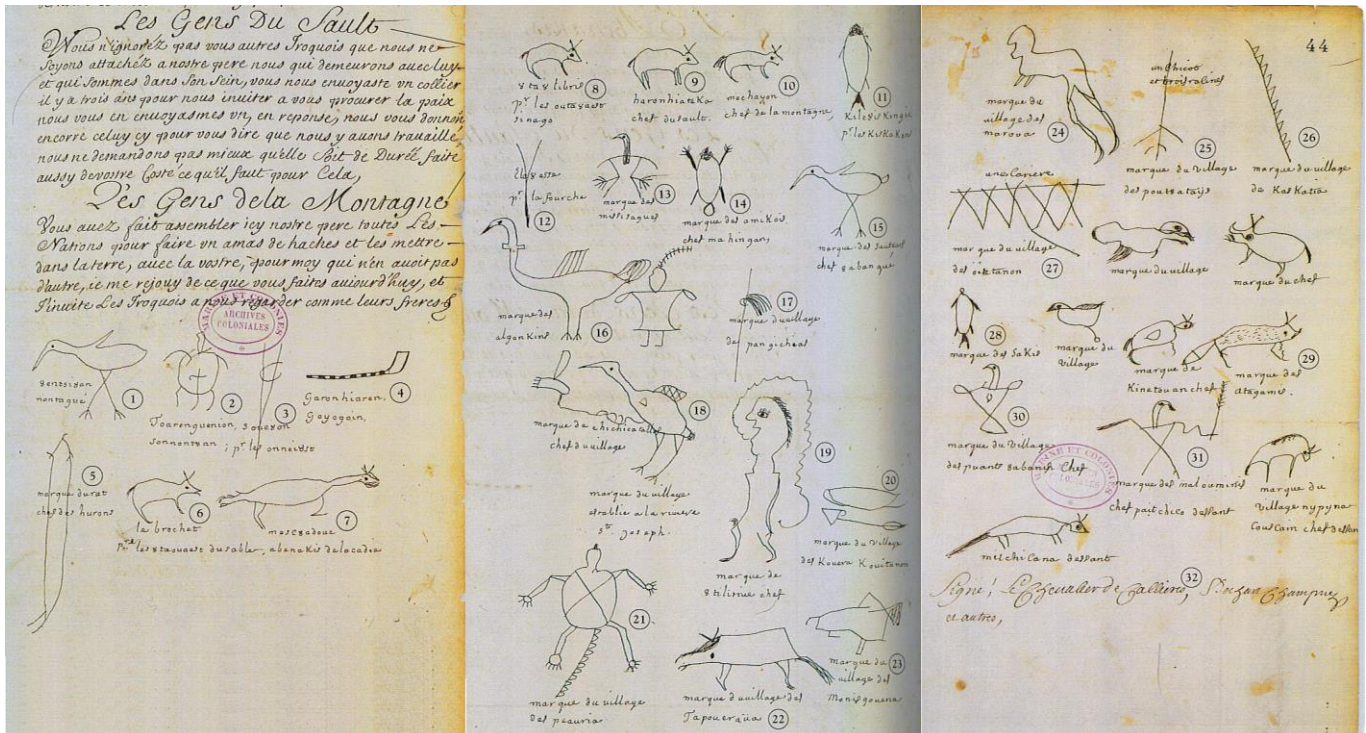 Les Gens Du Sault
Vous n'ignorez pas vous autres Iroquois que nous ne
soyons attachez a nostre pere nous qui demeurons avec luy
et qui sommes dans son sein, vous nous envoyaste vn collier
il y a trois ans pour nous inuiter a vous procurer la paix
nous vous en enuoyasmes vn, en reponse, nous vous donnons
encorre celuy cy pour vous dire que nous y auons trauaillé,
nous ne demandons pas mieux qu'elle soit de Durée, faite
aussy de vostre Costé ce qu'il faut pour Cela,
Les Gens de la Montagne
Vous auez fait assembler icy nostre pere toutes Les
Nations pour faire vn amas de haches et les mettre
dans la terre, auec la vostre, pour moy qui n'en auoit pas
d'autre, ie me rejouy de ce que vous faites aujourd'huy, et
J'inuite Les Iroquois a nous regarder comme leurs freres
MARINE ET COLONIES
ARCHIVES
COLONIALES
montagué
1
2
3
Garonhiaron,
Goyogoin,
4
Toarenguenion,
sonnontuan ; pr les onneiust
5
marque du rat
chef des hurons
le brochet
6
7
pr les 8taouast du sable, abenakis de lacadie
8
pr les outauast
sinago
haronhiateka
chef du sault,
9
mechayon
chef de la montagne,
10
11
Kileskingié
pr les KisKaKons
pr la fourche
12
marque des
missisagues
13
14
marque des amikois
chef mahingan,
15
marque des sauteurs
chef 8abangué
marque des
algonkins
16
17
marque du village
de pangicheas
marque de chichicatalle
chef du village
18
marque du village
etablie a la riuiere
St. Joseph.
19
marque de
8tilirine chef
20
marque du village
des Kouera Kouitanon
21
marque du village
des peauria
marque du village des
Tapoueraua
22
marque du
village des
Monisgouena
23
44
marque du
village des
marova
24
un chicot
et trois racines
25
marque du village
des pouteatais
26
marque du village
de KasKatia
une Lariere
marque du village
des oüetanon
27
marque du village
marque du chef
28
marque des saKis
marque du
village
marque de
Kinetouan chef
marque des
atagamis.
29
30
marque du village
des puants 8abanis Chef
31
marque des maloumines
chef paitchico dessant
marque du
village nypyna
Couscain chef dessant
melchilana dessant
32
Signé, Le Chevalier de Callieres, Bochart Champigny
et autres,